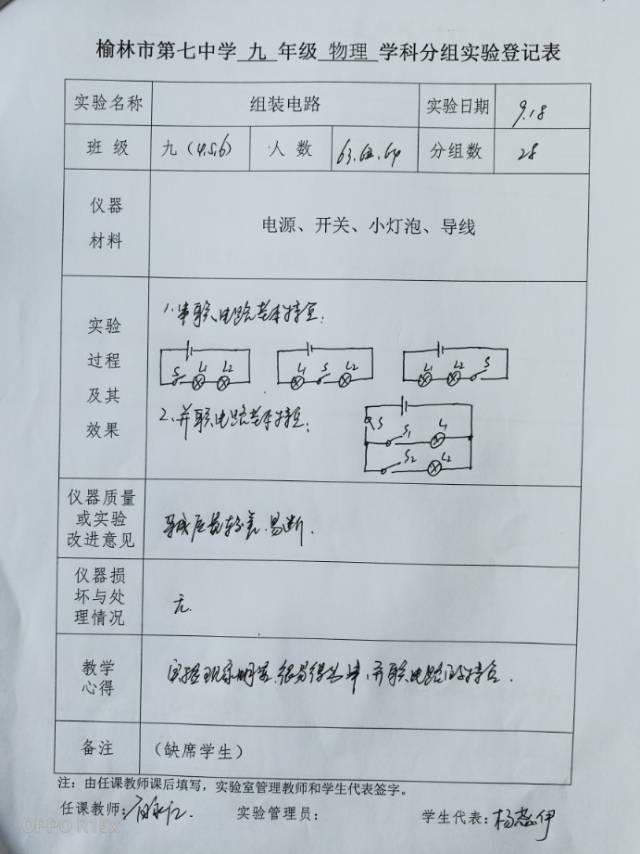 榆林市第七中学 九 年级 物理 学科分组实验登记表
实验名称 组装电路 实验日期 9.18
班 级 九（4.5.6） 人 数 63.62.64 分组数 28
仪器
材料
电源、开关、小灯泡、导线
实验
过程
及其
效果
1.串联电路基本特点:
S L1 L2
L1 S L2
L1 L2 S
2.并联电路基本特点:
S S1 L1
S2 L2
仪器质量
或实验
改进意见
导线质量较差.易断.
仪器损
坏与处
理情况
无.
教学
心得
实验现象明显.很易得出串、并联电路的特点.
备注 （缺席学生）
注：由任课教师课后填写，实验室管理教师和学生代表签字。
任课教师: 实验管理员: 学生代表:
OPPO R15x